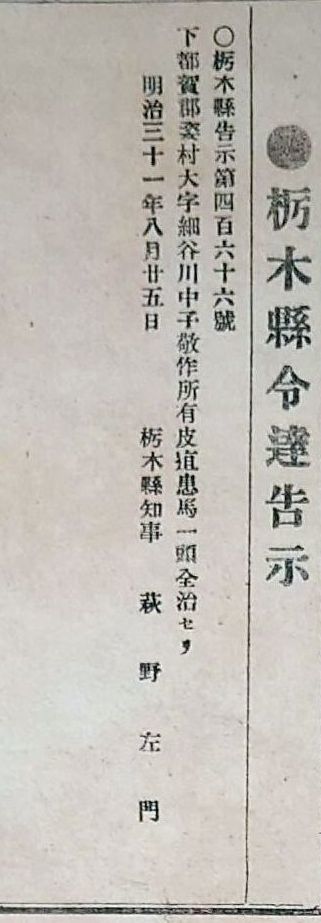 ●栃木縣令達告示
○栃木縣告示第四百六十六號
下都賀郡瑞村大字細谷川中子敬作所有皮疽患馬一頭全治セリ
明治三十一年八月廿五日 栃木縣知事 萩野左門